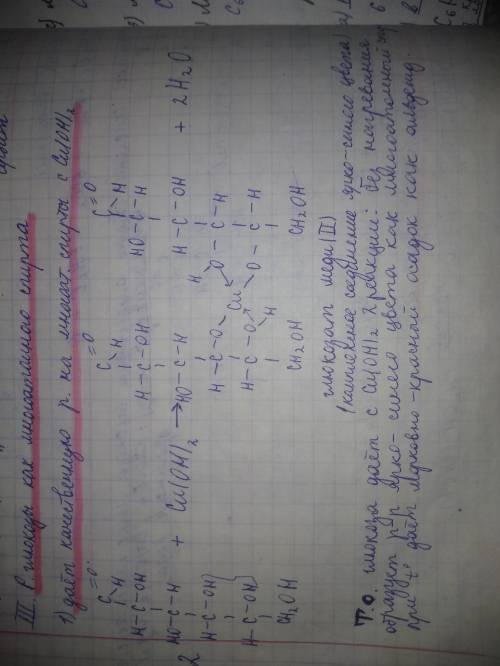 III. Р глюкозы как многоатомного спирта
1) даёт качественную р. на многоат. спирты с Cu(OH)₂
C=O C=O C=O
H H H
H-C-OH H-C-OH HO-C-H
HO-C-H + Cu(OH)₂ → HO-C-H H-C-OH + 2H₂O
2 H-C-OH H-C-O O-C-H
H Cu
H-C-OH H-C-O O-C-H
H
CH₂OH CH₂OH CH₂OH
глюкозат меди (II)
(комплексное соединение ярко-синего цвета)
Т.О. глюкоза даёт с Cu(OH)₂ 2 реакции: без нагревания
образует р-р ярко-синего цвета как многоатомный
при t° даёт морковно-красный осадок как альдегид.